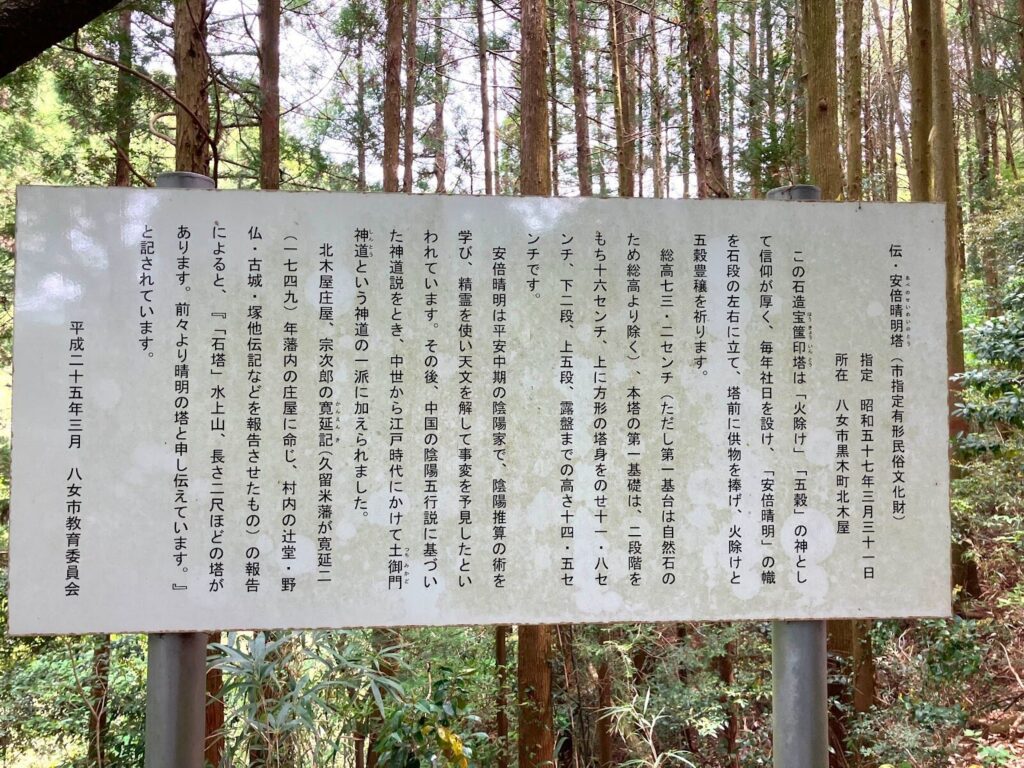 伝・安倍晴明塔（市指定有形民俗文化財）
指定　昭和五十七年三月三十一日
所在　八女市黒木町北木屋
この石造宝篋印塔は「火除け」「五穀」の神とし
て信仰が厚く、毎年社日を設け、「安倍晴明」の幟
を石段の左右に立て、塔前に供物を捧げ、火除けと
五穀豊穣を祈ります。
総高七三・二センチ（ただし第一基台は自然石の
ため総高より除く）、本塔の第一基礎は、二段階を
もち十六センチ、上に方形の塔身をのせ十一・八セ
ンチ、下二段、上五段、露盤までの高さ十四・五セ
ンチです。
安倍晴明は平安中期の陰陽家で、陰陽推算の術を
学び、精霊を使い天文を解して事変を予見したとい
われています。その後、中国の陰陽五行説に基づい
た神道説をとき、中世から江戸時代にかけて土御門
神道という神道の一派に加えられました。
北木屋庄屋、宗次郎の寛延記（久留米藩が寛延二
（一七四九）年藩内の庄屋に命じ、村内の辻堂・野
仏・古城・塚他伝記などを報告させたもの）の報告
によると、『「石塔」水上山、長さ二尺ほどの塔が
あります。前々より晴明の塔と申し伝えています。』
と記されています。
平成二十五年三月　八女市教育委員会